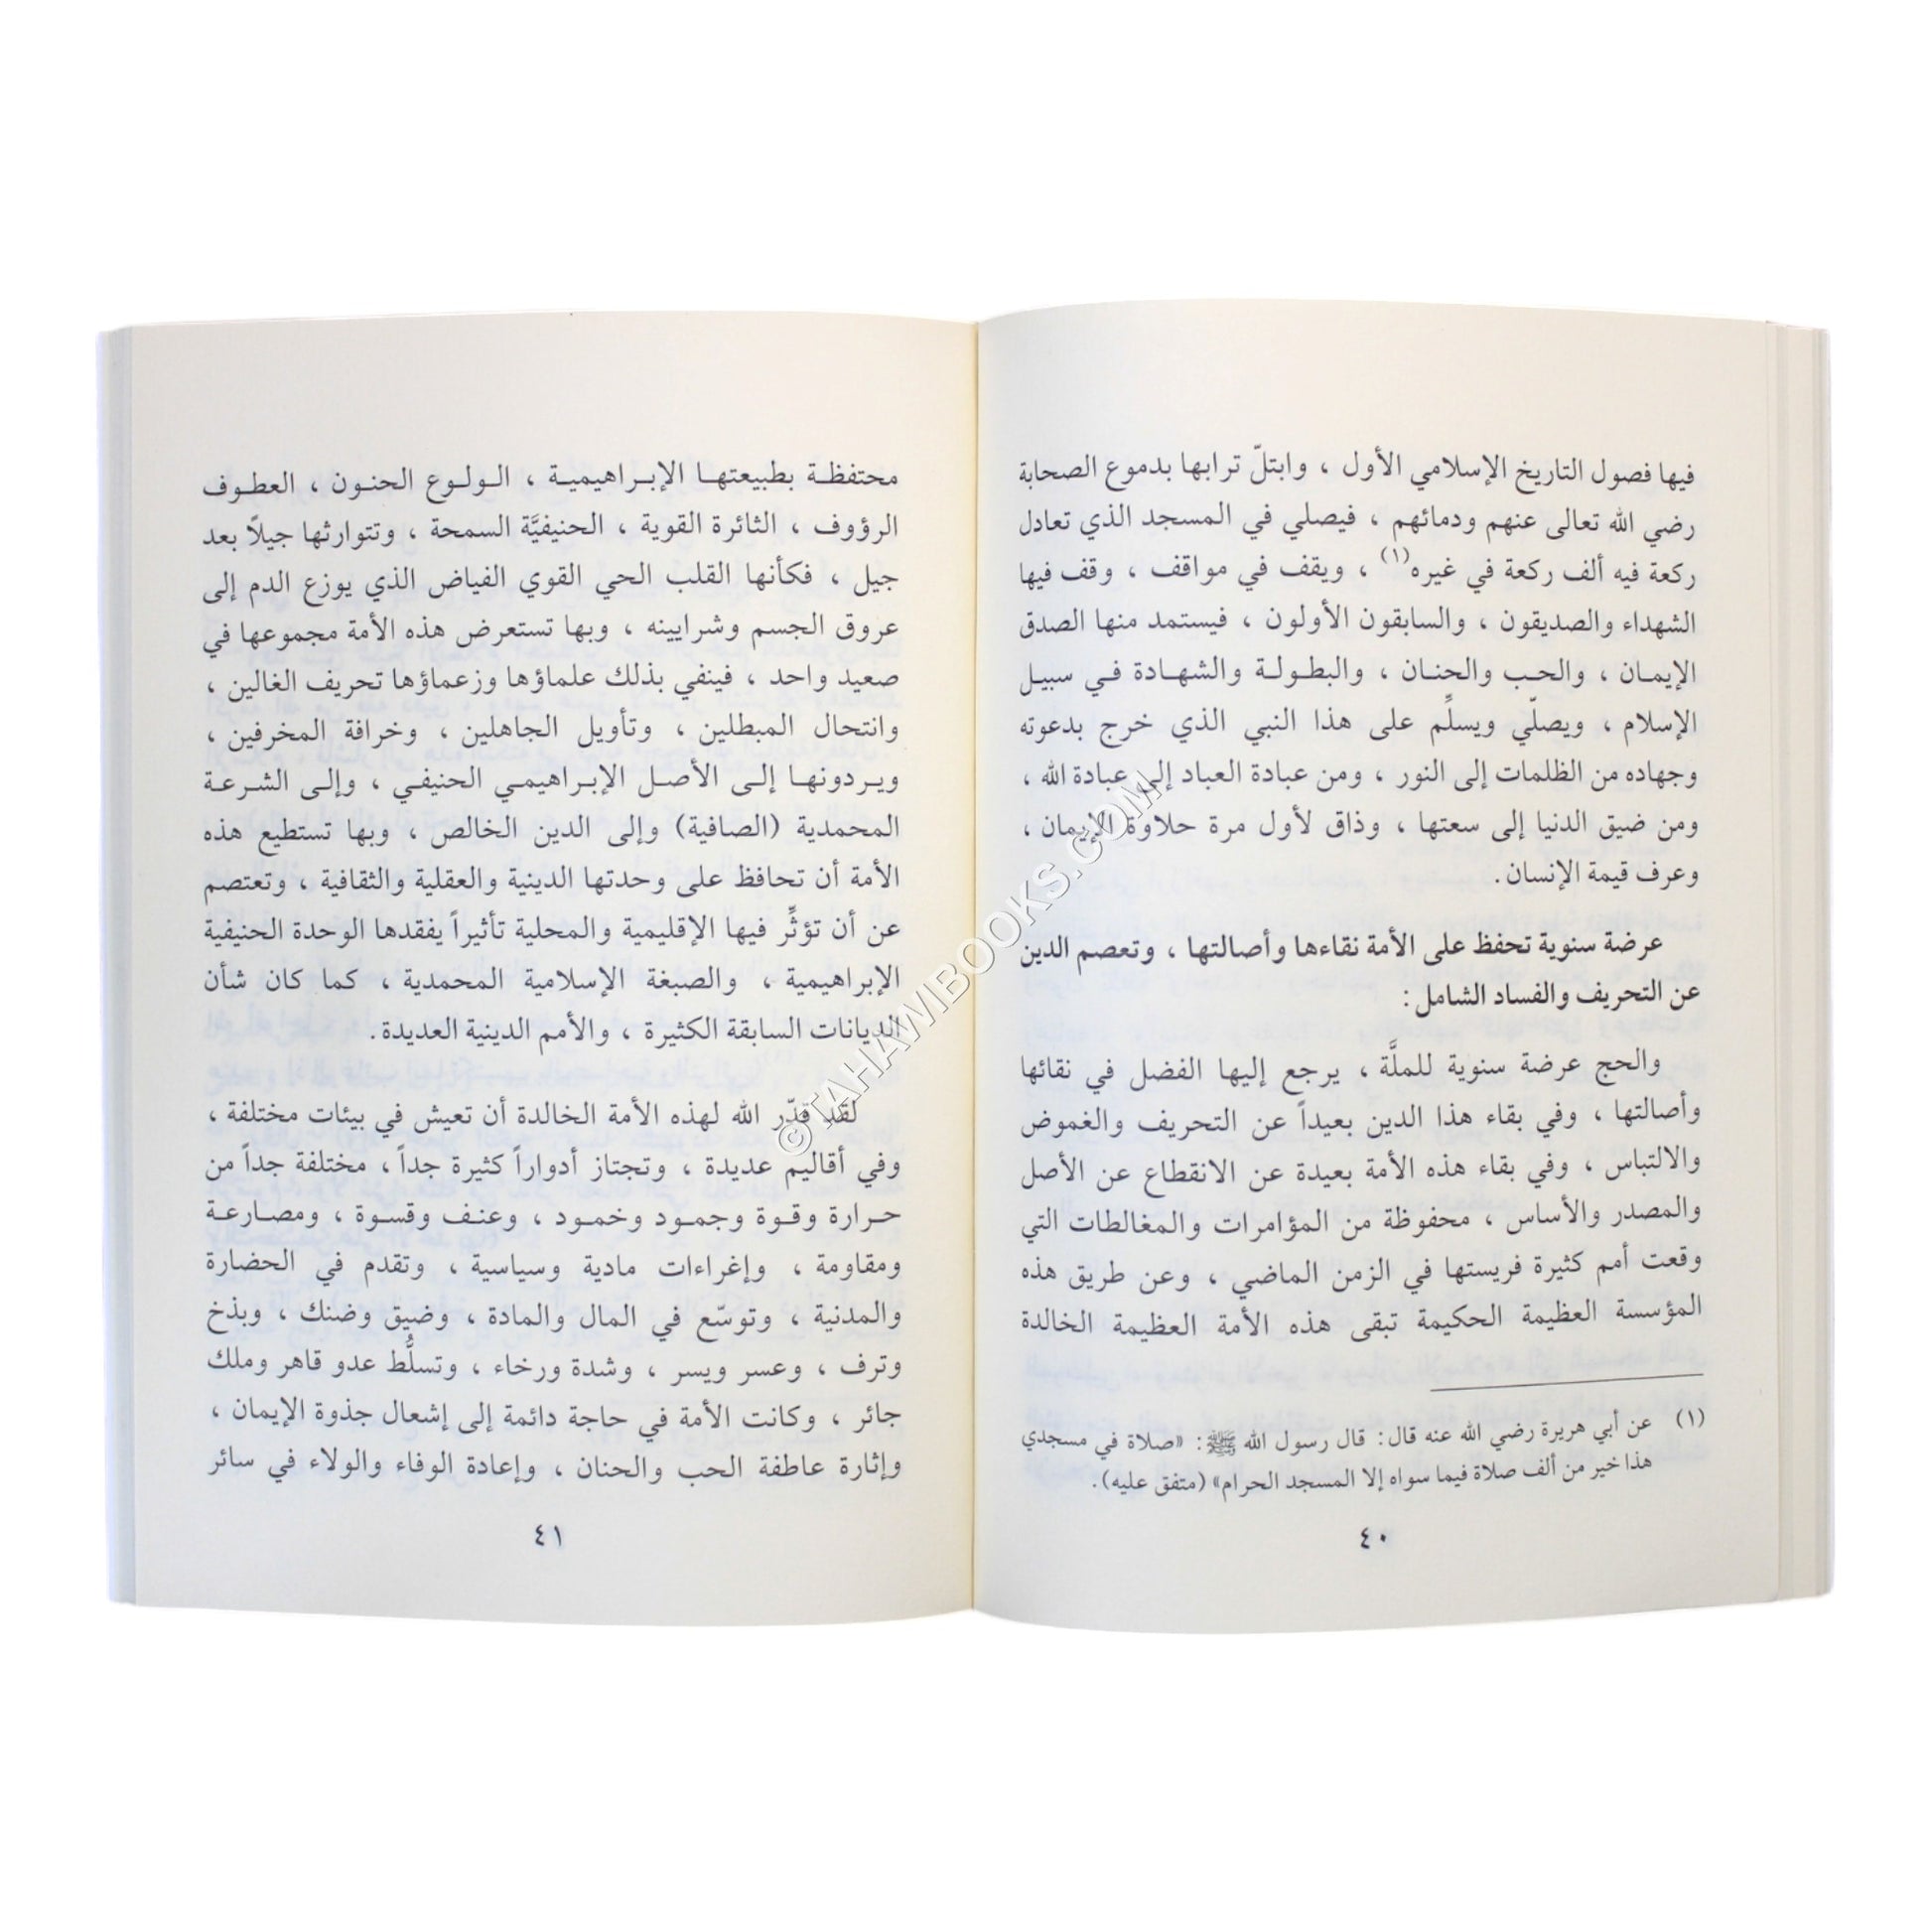 فيها فصول التاريخ الإسلامي الأول ، وابتلّ ترابها بدموع الصحابة
رضي الله تعالى عنهم ودمائهم ، فيصلي في المسجد الذي تعادل
ركعة فيه ألف ركعة في غيره(١) ، ويقف في مواقف ، وقف فيها
الشهداء والصديقون ، والسابقون الأولون ، فيستمد منها الصدق
الإيمان ، والحب والحنان ، والبطولة والشهادة في سبيل
الإسلام ، ويصلّي ويسلِّم على هذا النبي الذي خرج بدعوته
وجهاده من الظلمات إلى النور ، ومن عبادة العباد إلى عبادة الله ،
ومن ضيق الدنيا إلى سعتها ، وذاق لأول مرة حلاوة الإيمان ،
وعرف قيمة الإنسان.
عرضة سنوية تحفظ على الأمة نقاءها وأصالتها ، وتعصم الدين
عن التحريف والفساد الشامل :
والحج عرضة سنوية للملَّة ، يرجع إليها الفضل في نقائها
وأصالتها ، وفي بقاء هذا الدين بعيداً عن التحريف والغموض
والالتباس ، وفي بقاء هذه الأمة بعيدة عن الانقطاع عن الأصل
والمصدر والأساس ، محفوظة من المؤامرات والمغالطات التي
وقعت أمم كثيرة فريستها في الزمن الماضي ، وعن طريق هذه
المؤسسة العظيمة الحكيمة تبقى هذه الأمة العظيمة الخالدة
(١) عن أبي هريرة رضي الله عنه قال: قال رسول الله ﷺ: «صلاة في مسجدي
هذا خير من ألف صلاة فيما سواه إلا المسجد الحرام» (متفق عليه).
٤٠
محتفظة بطبيعتها الإبراهيمية ، الولوع الحنون ، العطوف
الرؤوف ، الثائرة القوية ، الحنيفيَّة السمحة ، وتتوارثها جيلاً بعد
جيل ، فكأنها القلب الحي القوي الفياض الذي يوزع الدم إلى
عروق الجسم وشرايينه ، وبها تستعرض هذه الأمة مجموعها في
صعيد واحد ، فينفي بذلك علماؤها وزعماؤها تحريف الغالين ،
وانتحال المبطلين ، وتأويل الجاهلين ، وخرافة المخرفين ،
ويردونها إلى الأصل الإبراهيمي الحنيفي ، وإلى الشرعة
المحمدية (الصافية) وإلى الدين الخالص ، وبها تستطيع هذه
الأمة أن تحافظ على وحدتها الدينية والعقلية والثقافية ، وتعتصم
عن أن تؤثِّر فيها الإقليمية والمحلية تأثيراً يفقدها الوحدة الحنيفية
الإبراهيمية ، والصبغة الإسلامية المحمدية ، كما كان شأن
الديانات السابقة الكثيرة ، والأمم الدينية العديدة.
لقد قدّر الله لهذه الأمة الخالدة أن تعيش في بيئات مختلفة ،
وفي أقاليم عديدة ، وتجتاز أدواراً كثيرة جداً ، مختلفة جداً من
حرارة وقوة وجمود وخمود ، وعنف وقسوة ، ومصارعة
ومقاومة ، وإغراءات مادية وسياسية ، وتقدم في الحضارة
والمدنية ، وتوسّع في المال والمادة ، وضيق وضنك ، وبذخ
وترف ، وعسر ويسر ، وشدة ورخاء ، وتسلُّط عدو قاهر وملك
جائر ، وكانت الأمة في حاجة دائمة إلى إشعال جذوة الإيمان ،
وإثارة عاطفة الحب والحنان ، وإعادة الوفاء والولاء في سائر
٤١
© TAHAWIBOOKS.COM